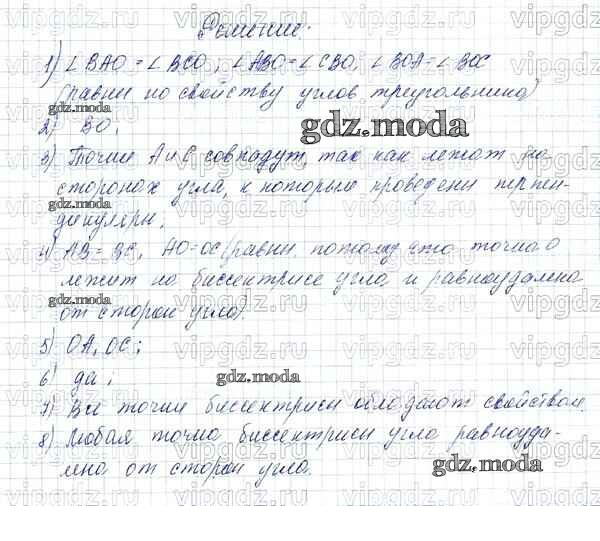 Решение:
1) ∠BAO = ∠BCO; ∠ABO = ∠CBO, ∠BOA = ∠BOC
(равны по свойству углов треугольника)
2) BO;
3) Точки A и C совпадут, так как лежат на
сторонах угла, к которым проведены перпен-
дикуляры;
4) AB = BC, AO = OC (равны, потому что точка O
лежит на биссектрисе угла и равноудалена
от сторон угла).
5) OA, OC;
6) да;
7) Все точки биссектрисы обладают свойством.
8) Любая точка биссектрисы угла равноуда-
лена от сторон угла.
gdz.moda
gdz.moda
gdz.moda
gdz.moda
gdz.moda
gdz.moda
vipgdz.ru